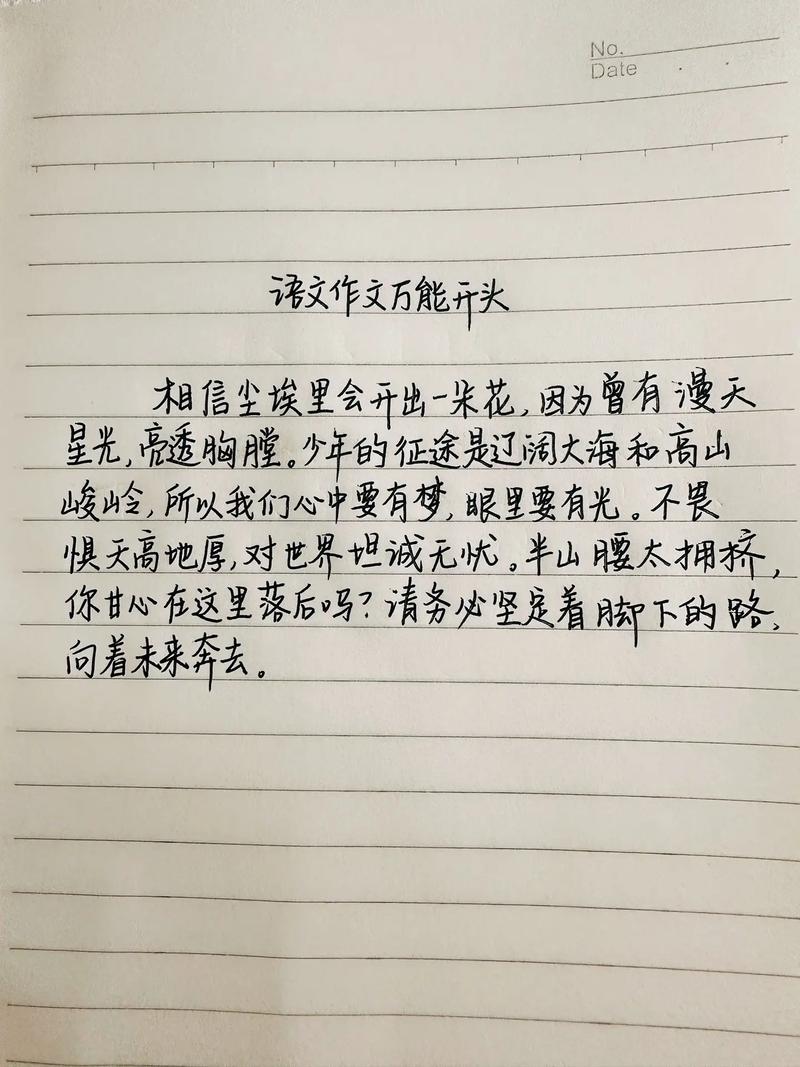 No.
Date
语文作文万能开头
相信尘埃里会开出一朵花,因为曾有漫天
星光,亮透胸膛。少年的征途是辽阔大海和高山
峻岭,所以我们心中要有梦,眼里要有光。不畏
惧天高地厚,对世界坦诚无忧。半山腰太拥挤,
你甘心在这里落后吗?请务必坚定着脚下的路,
向着未来奔去。